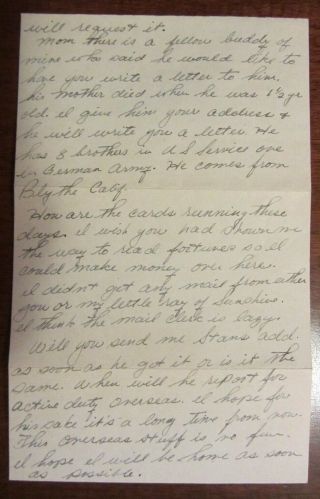 will request it.
Mom there is a fellow buddy of
mine who said he would like to
have you write a letter to him.
his mother died when he was 1½ yr
old. il give him your address &
he will write you a letter. He
has 3 brothers in U.S Service one
in German Army. He comes from
Blythe Calf.
How are the cards running these
days. il wish you had shown me
the way to read fortunes so il
could make money over here.
il didn't get any mail from either
you or my little ray of Sunshine.
il think the mail clerk is lazy.
Will you send me Stans add.
as soon as he got it or is it the
same. When will he report for
active duty overseas. il hope for
his sake it's a long time from now.
This overseas stuff is no fun.
il hope il will be home as soon
as possible.